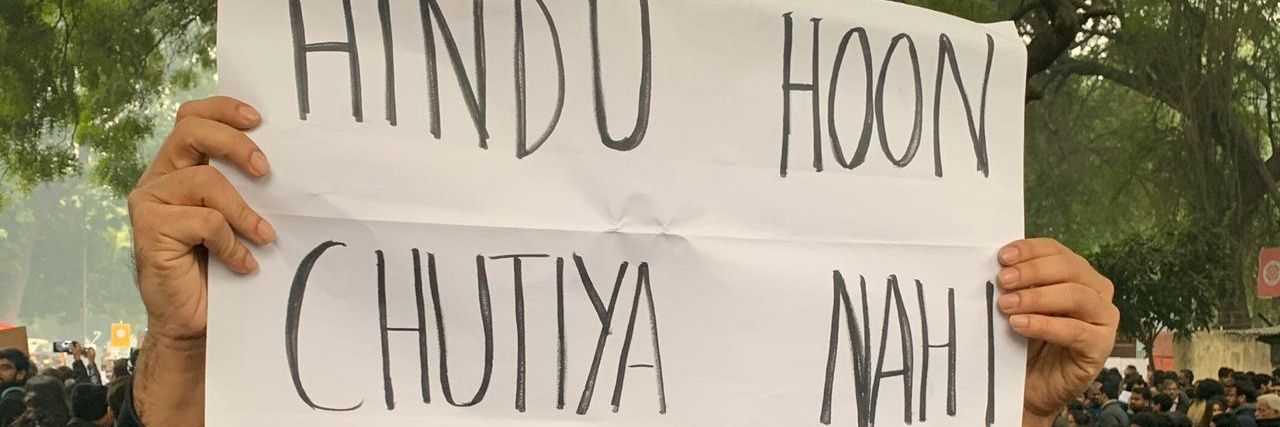 HINDU HOON
CHUTIYA NAHI